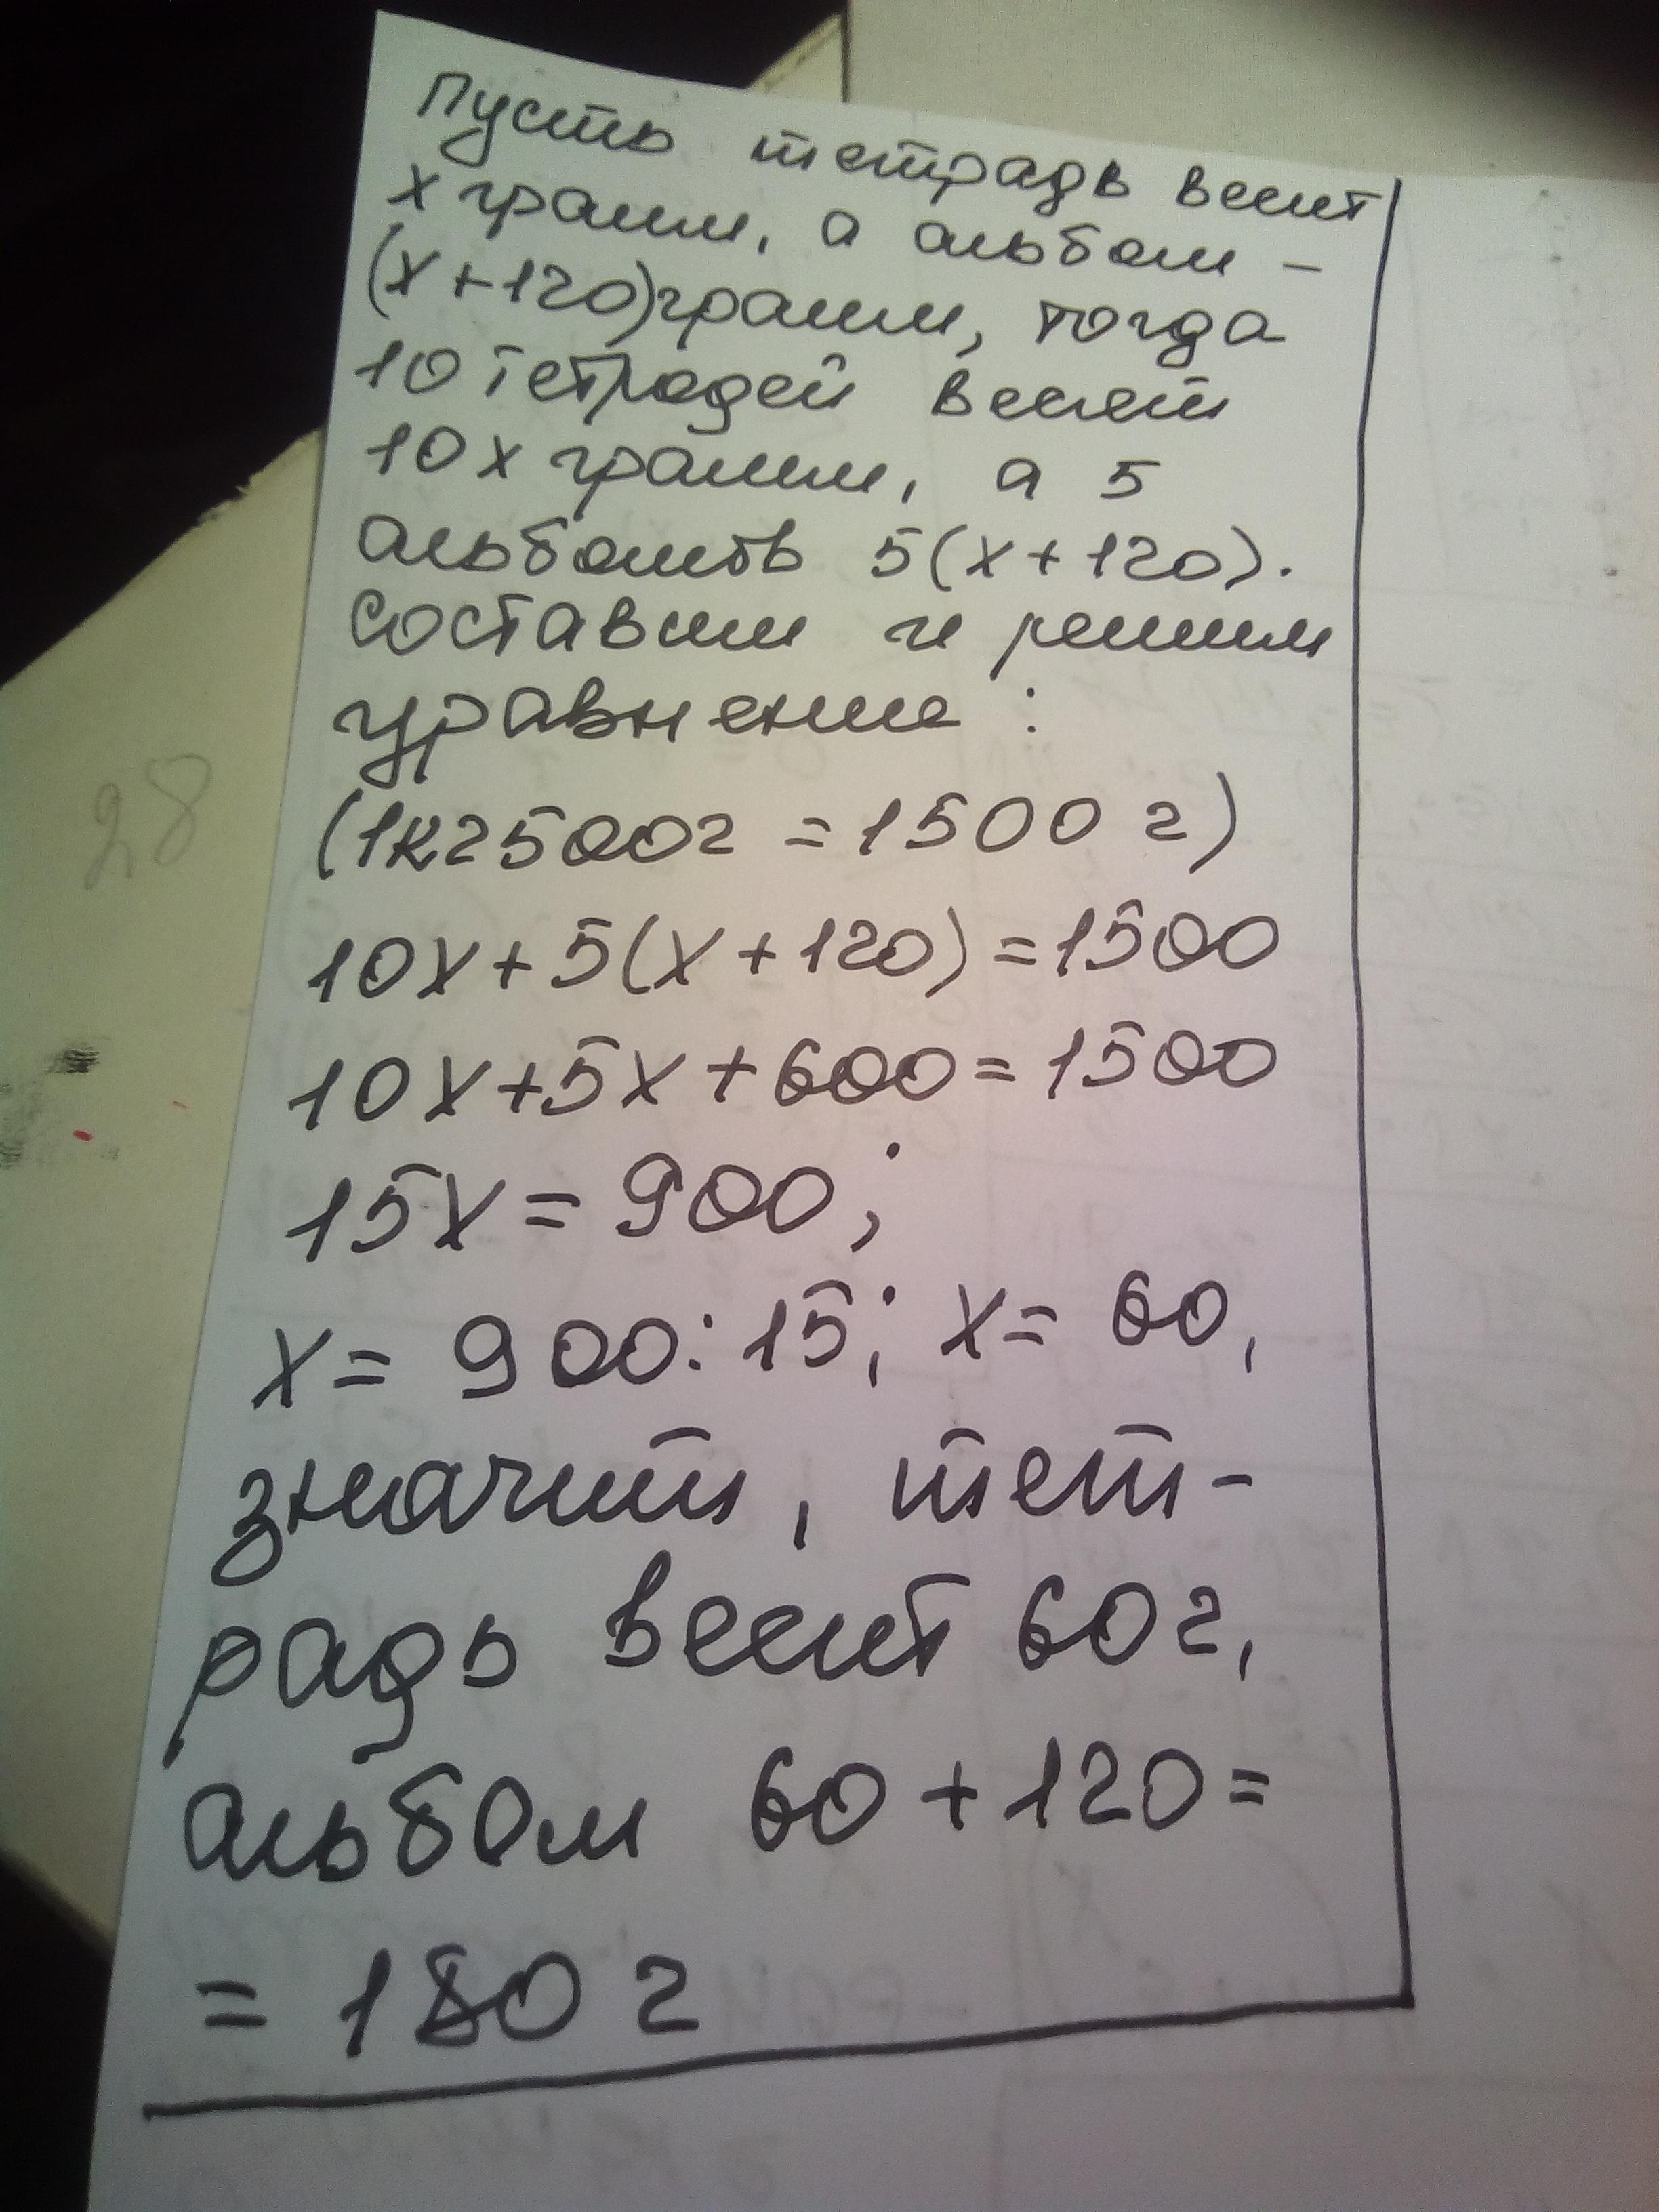 Пусть тетрадь весит
х грамм, а альбом –
(х+120)грамм, тогда
10 тетрадей весят
10х грамм, а 5
альбомов 5(х+120).
Составим и решим
уравнение:
(1кг500г = 1500 г)
10х+5(х+120)=1500
10х+5х+600=1500
15х=900;
х= 900:15; х= 60,
значит, тет-
радь весит 60г,
альбом 60+120=
= 180 г
28